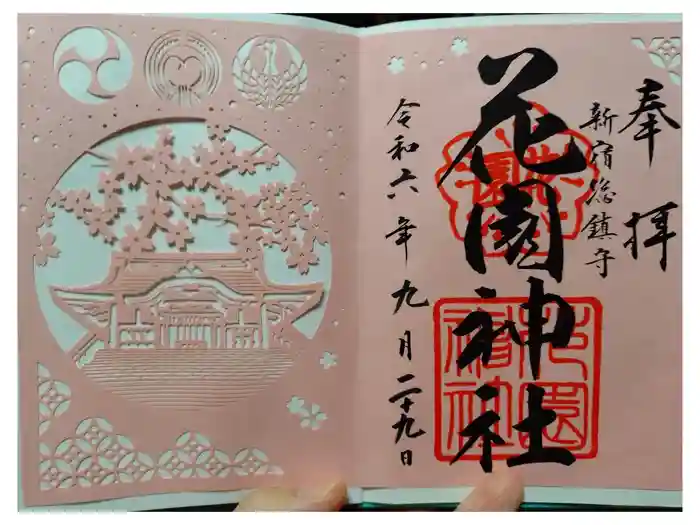 奉拝
新宿総鎮守
花園神社
令和六年九月二十九日